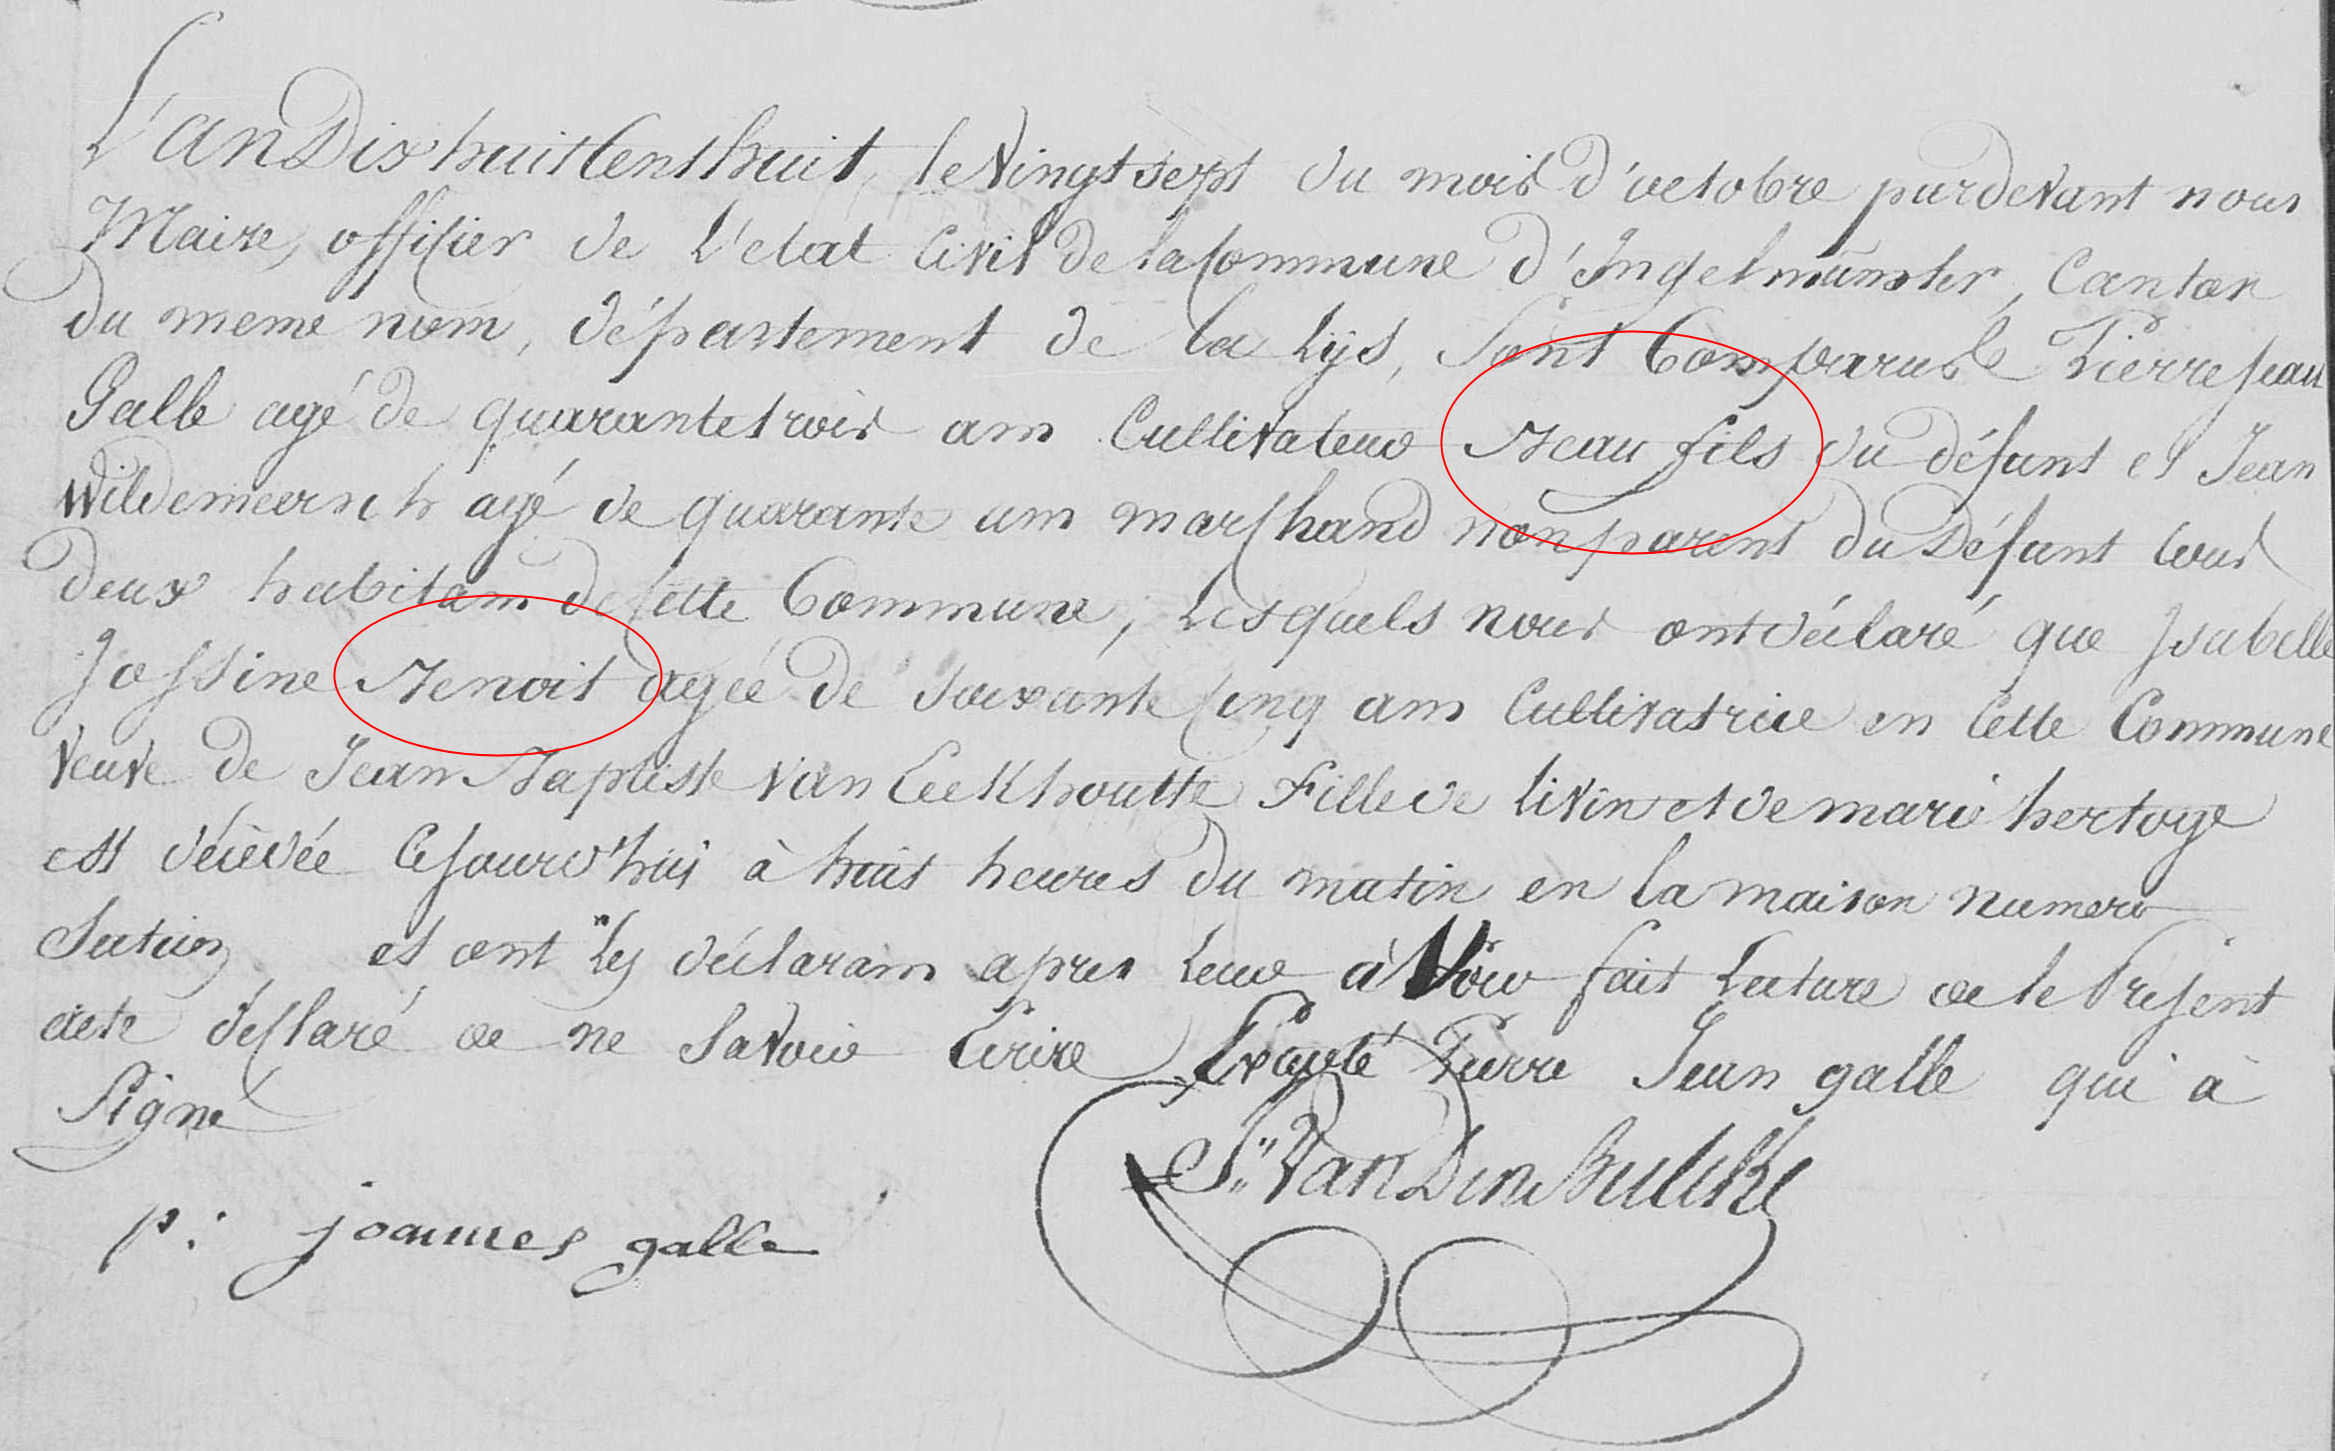 L'an Dix huit Cent huit, le Vingt sept du mois d'octobre pardevant nous
Maire, officier de L'etat Civil de la Commune d'Ingelmunster, Canton
du meme nom, département de la Lys, Sont Comparus Pierre Jean
Galle agé de quarante trois ans Cultivateur Beau fils du défunt et Jean
Wildemeersch agé de quarante ans marchand non parent du Défunt tous
deux habitans de Cette Commune, Lesquels nous ont déclaré que Isabelle
Jossine Benoit agée de Soixante Cinq ans Cultivatrice en Cette Commune
Veuve de Jean Baptiste Van Eeckhoutte Fille de Livin et de marie hertoge
est décédée Cejourd'hui à huit heures du matin en la maison numero
Section et ont Les déclarans apres Leur avoir fait Lecture de le Present
acte déclaré de ne Savoir Ecrire Excepté Pierre Jean galle qui à
Signé
p: joannes galle